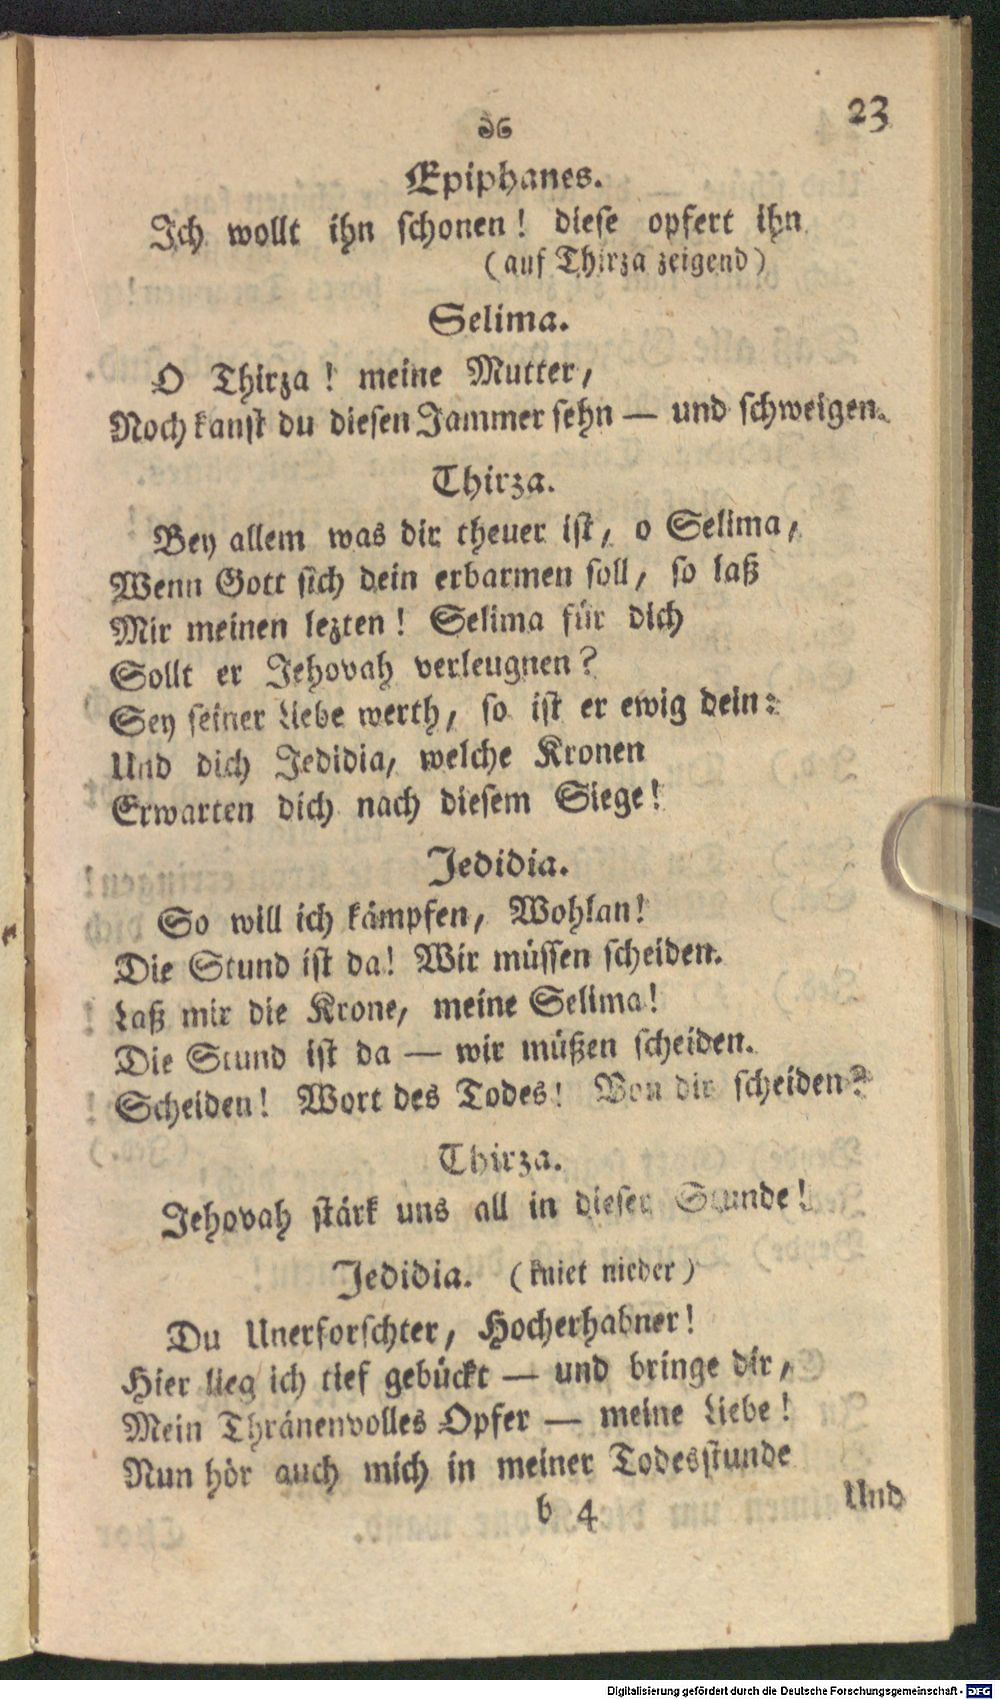 23
Epiphanes.
Ich wollt ihn schonen! diese opfert ihn
(auf Thirza zeigend)
Selima.
O Thirza! meine Mutter,
Noch kanst du diesen Jammer sehn — und schweigen.
Thirza.
Bey allem was dir theuer ist, o Selima,
Wenn Gott sich dein erbarmen soll, so laß
Mir meinen lezten! Selima für dich
Sollt er Jehovah verleugnen?
Sey seiner Liebe werth, so ist er ewig dein:
Und dich Jedidia, welche Kronen
Erwarten dich nach diesem Siege!
Jedidia.
So will ich kämpfen, Wohlan!
Die Stund ist da! Wir müssen scheiden.
Laß mir die Krone, meine Selima!
Die Stund ist da — wir müßen scheiden.
Scheiden! Wort des Todes! Von dir scheiden?
Thirza.
Jehovah stärk uns all in dieser Stunde!
Jedidia. (kniet nieder)
Du Unerforschter, Hocherhabner!
Hier lieg ich tief gebückt — und bringe dir,
Mein Thränenvolles Opfer — meine Liebe!
Nun hör auch mich in meiner Todesstunde
b 4 Und
Digitalisierung gefördert durch die Deutsche Forschungsgemeinschaft - DFG